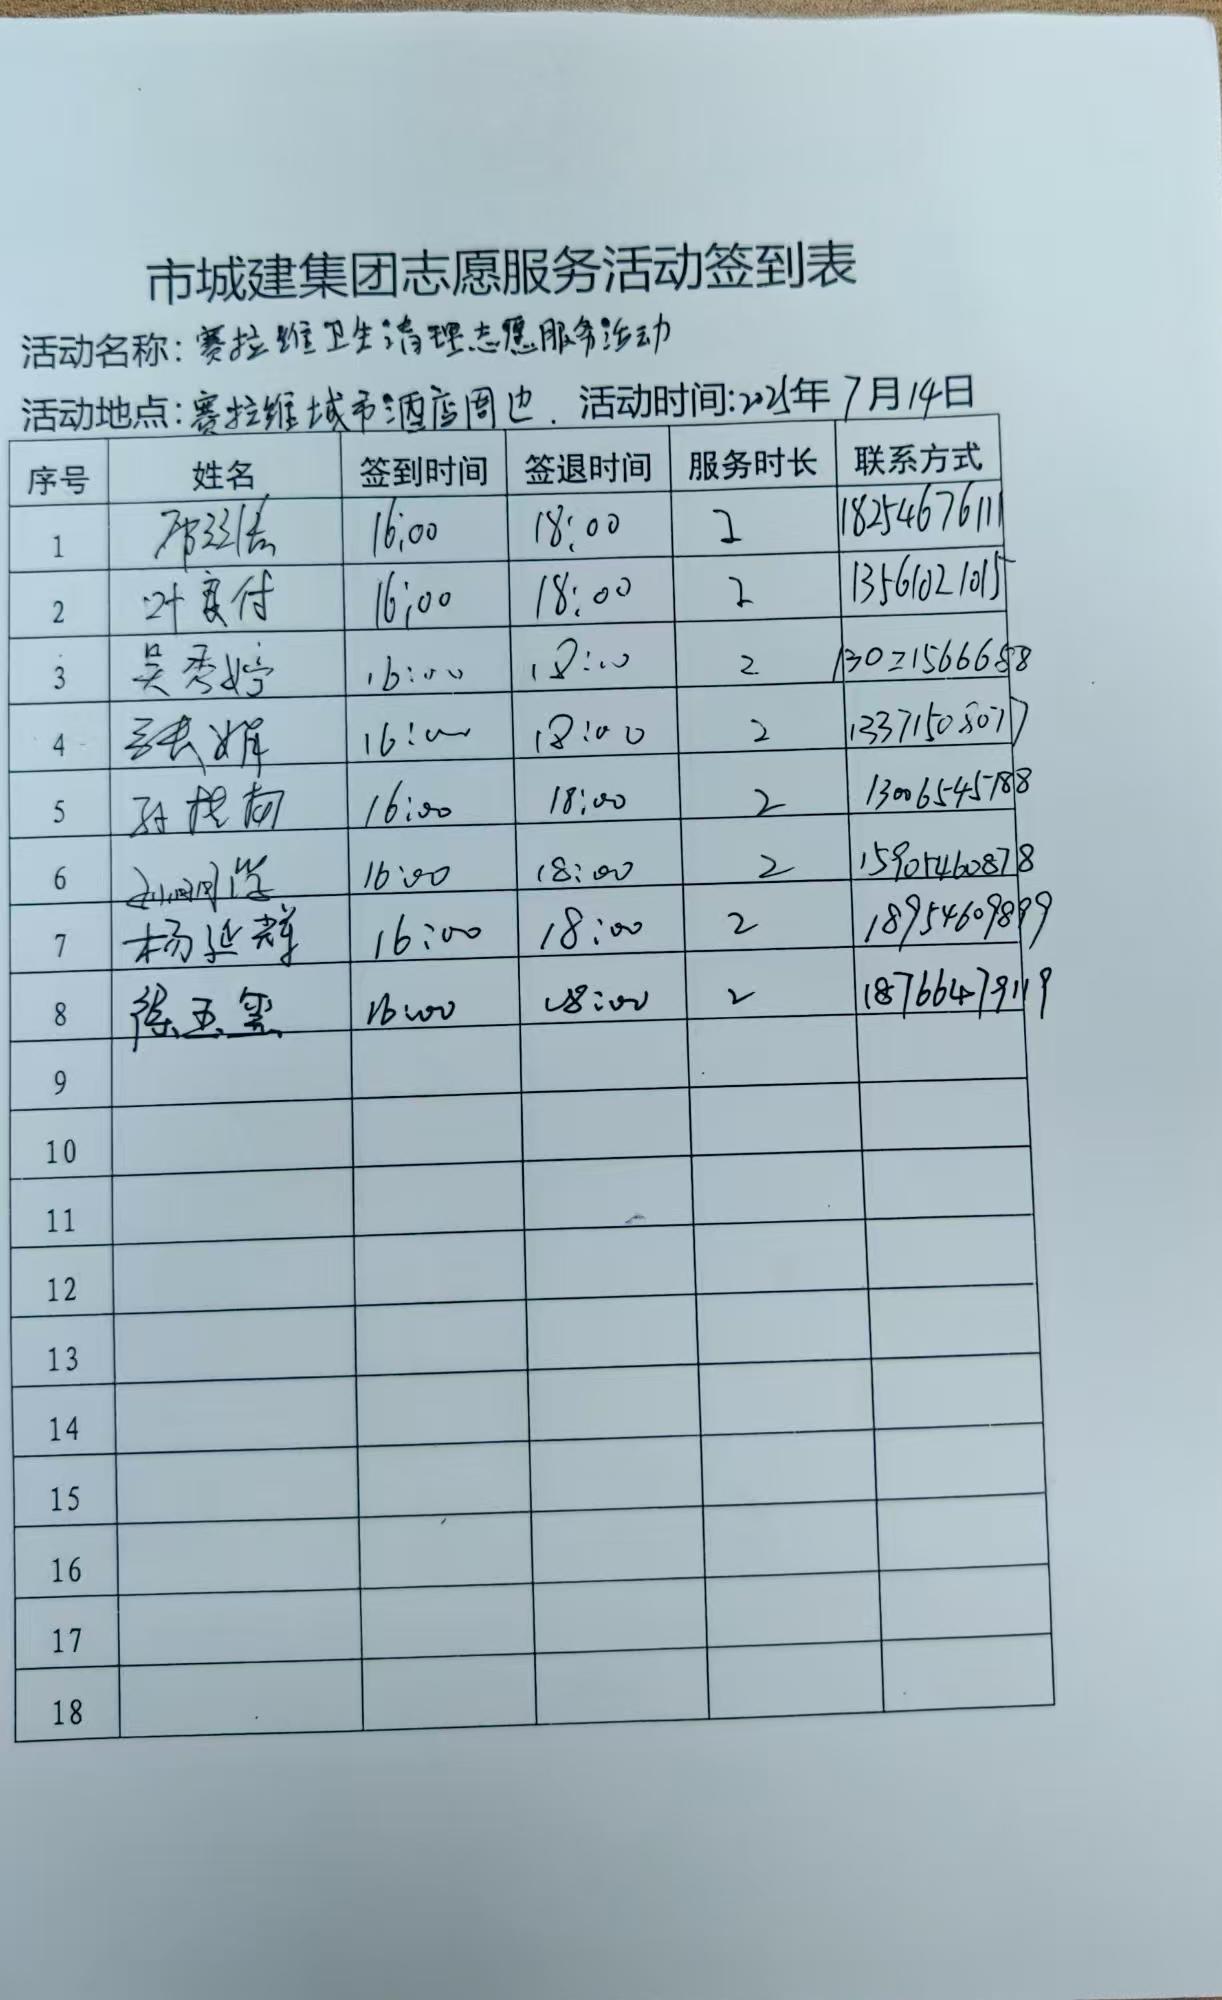 市城建集团志愿服务活动签到表
活动名称:赛拉维卫生清理志愿服务活动
活动地点:赛拉维城市酒店周边. 活动时间:2025年7月14日
序号 姓名 签到时间 签退时间 服务时长 联系方式
1 16:00 18:00 2 18254676111
2 叶襄付 16:00 18:00 2 13561021015
3 吴秀婷 16:00 18:00 2 13021566688
4 张娟 16:00 18:00 2 13371508077
5 孙 16:00 18:00 2 13006545788
6 16:00 18:00 2 15905460878
7 杨延群 16:00 18:00 2 18954609899
8 陈玉玺 16:00 18:00 2 18766479119
9
10
11
12
13
14
15
16
17
18